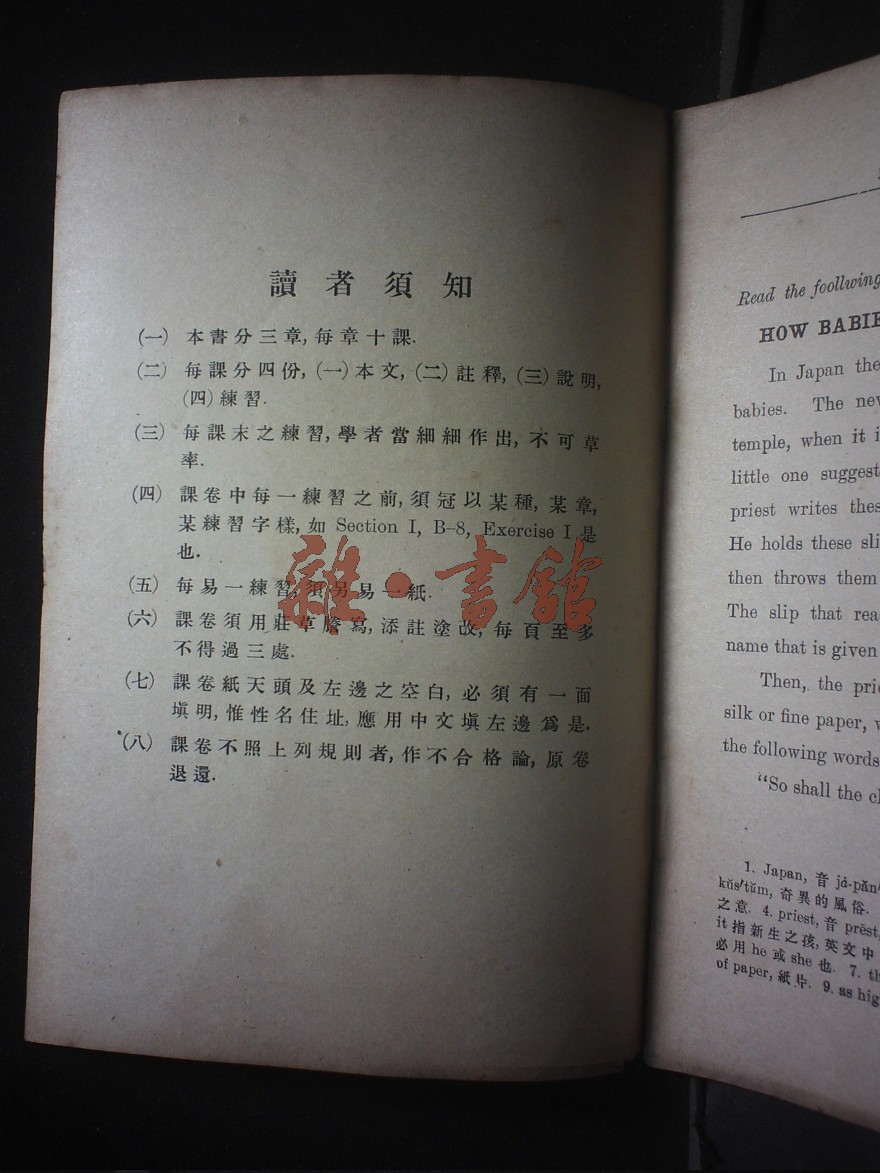 讀者須知
(一) 本書分三章, 每章十課.
(二) 每課分四份, (一)本文, (二)註釋, (三)說明,
(四)練習.
(三) 每課末之練習, 學者當細細作出, 不可草
率.
(四) 課卷中每一練習之前, 須冠以某種, 某章,
某練習字樣, 如 Section I, B-8, Exercise I 是
也.
(五) 每易一練習, 須另易一紙.
(六) 課卷須用莊草謄寫, 添註塗改, 每頁至多
不得過三處.
(七) 課卷紙天頭及左邊之空白, 必須有一面
塡明, 惟性名住址, 應用中文塡左邊爲是.
(八) 課卷不照上列規則者, 作不合格論, 原卷
退還.
雜·書館
Read the foollwing
HOW BABIE
In Japan the
babies. The new
temple, when it i
little one suggest
priest writes thes
He holds these sli
then throws them
The slip that rea
name that is given
Then, the prie
silk or fine paper, w
the following words
"So shall the ch
1. Japan, 音 já-păn/
kŭs/tŭm, 奇異的風俗.
之意. 4. priest, 音 prēst,
it 指新生之孩, 英文中
必用 he 或 she 也. 7. th
of paper, 紙片. 9. as hig